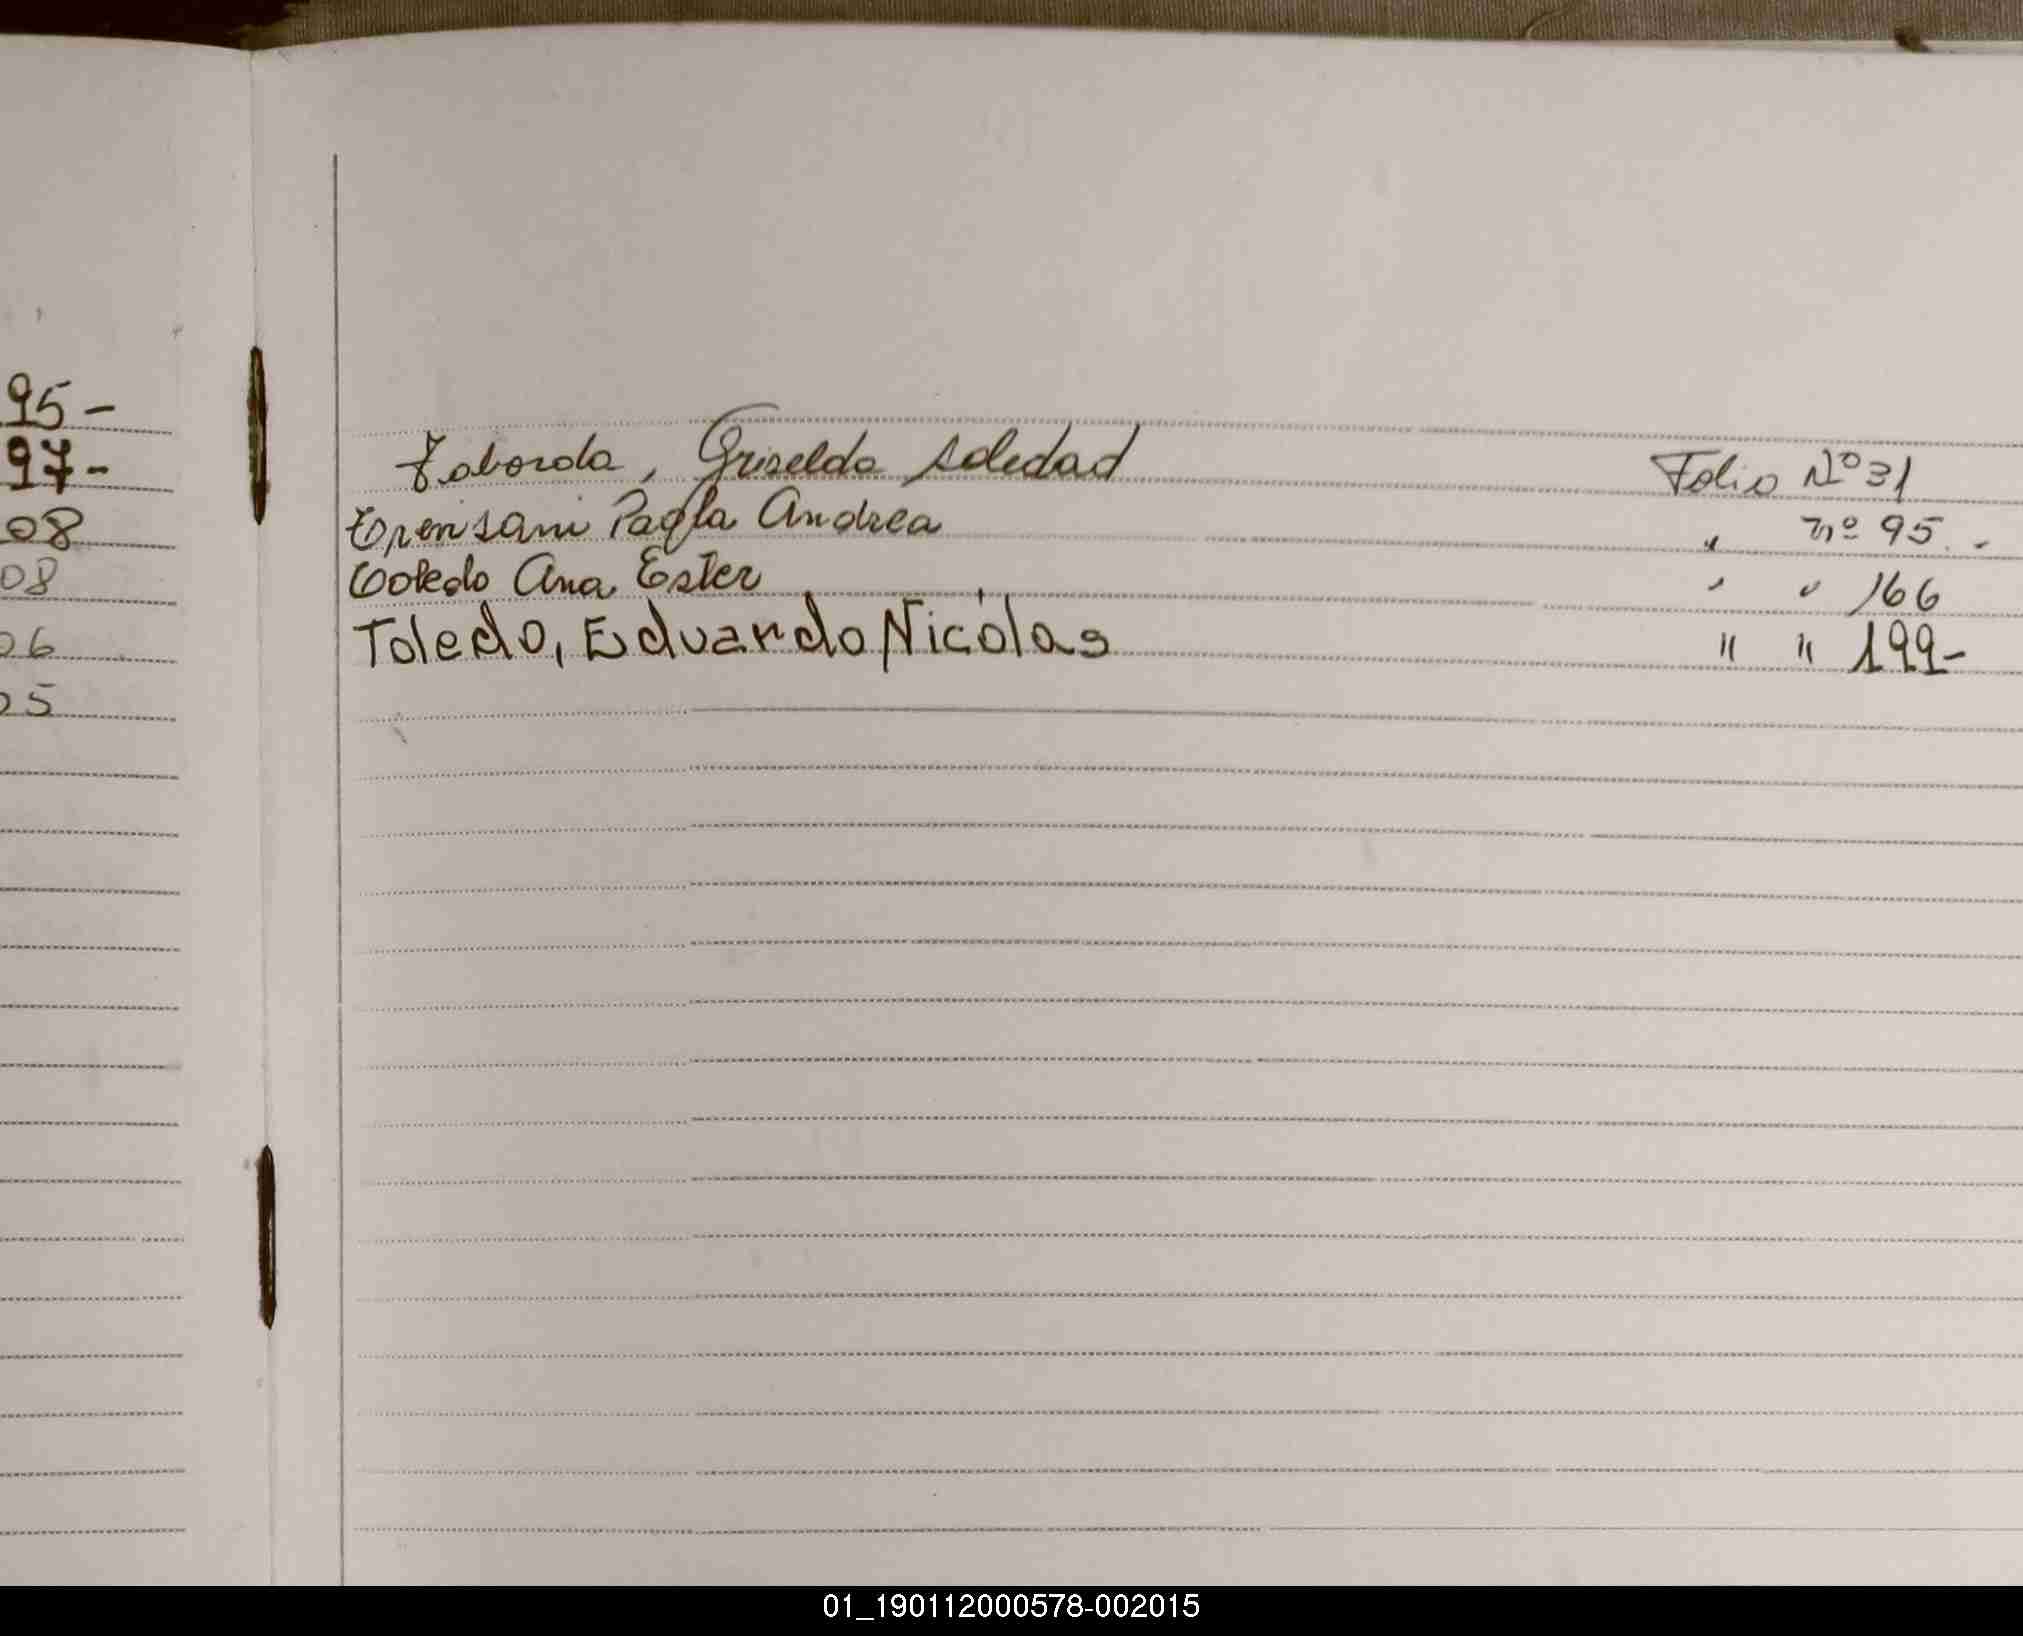 95-
97-
08
08
06
05
Taborda, Griselda Soledad Folio Nº 31
Trensani Paola Andrea " nº 95.-
Toledo Ana Ester " " 166
Toledo, Eduardo Nicolás " " 199-
01_190112000578-002015